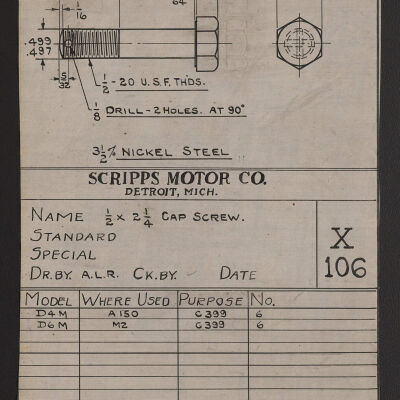 64
1/16
.499
.497
5/32
1/2 - 20 U.S.F. THDS.
1/8 DRILL - 2 HOLES. AT 90°
3 1/2 % NICKEL STEEL
SCRIPPS MOTOR CO.
DETROIT, MICH.
NAME 1/2 x 2 1/4 CAP SCREW.
STANDARD
SPECIAL
DR. BY. A.L.R. CK. BY. DATE
X
106
MODEL WHERE USED PURPOSE NO.
D4M A150 C399 6
D6M M2 C399 6